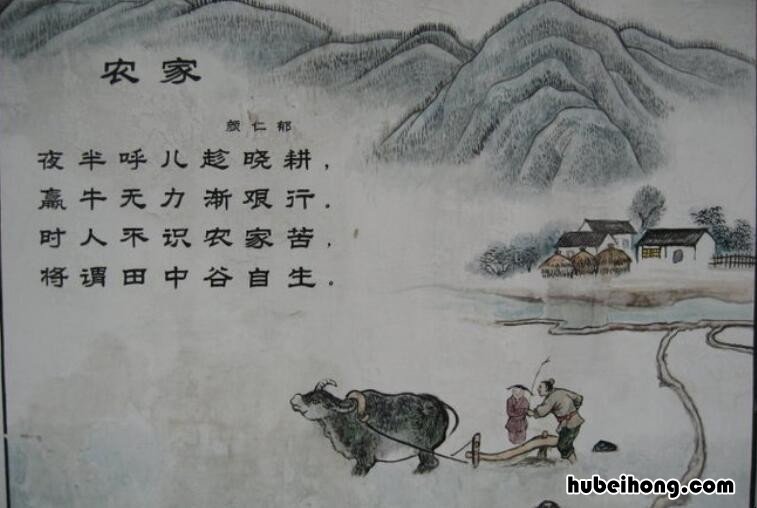 农家
颜仁郁
夜半呼儿趁晓耕，
羸牛无力渐艰行。
时人不识农家苦，
将谓田中谷自生。
hubeihong.com